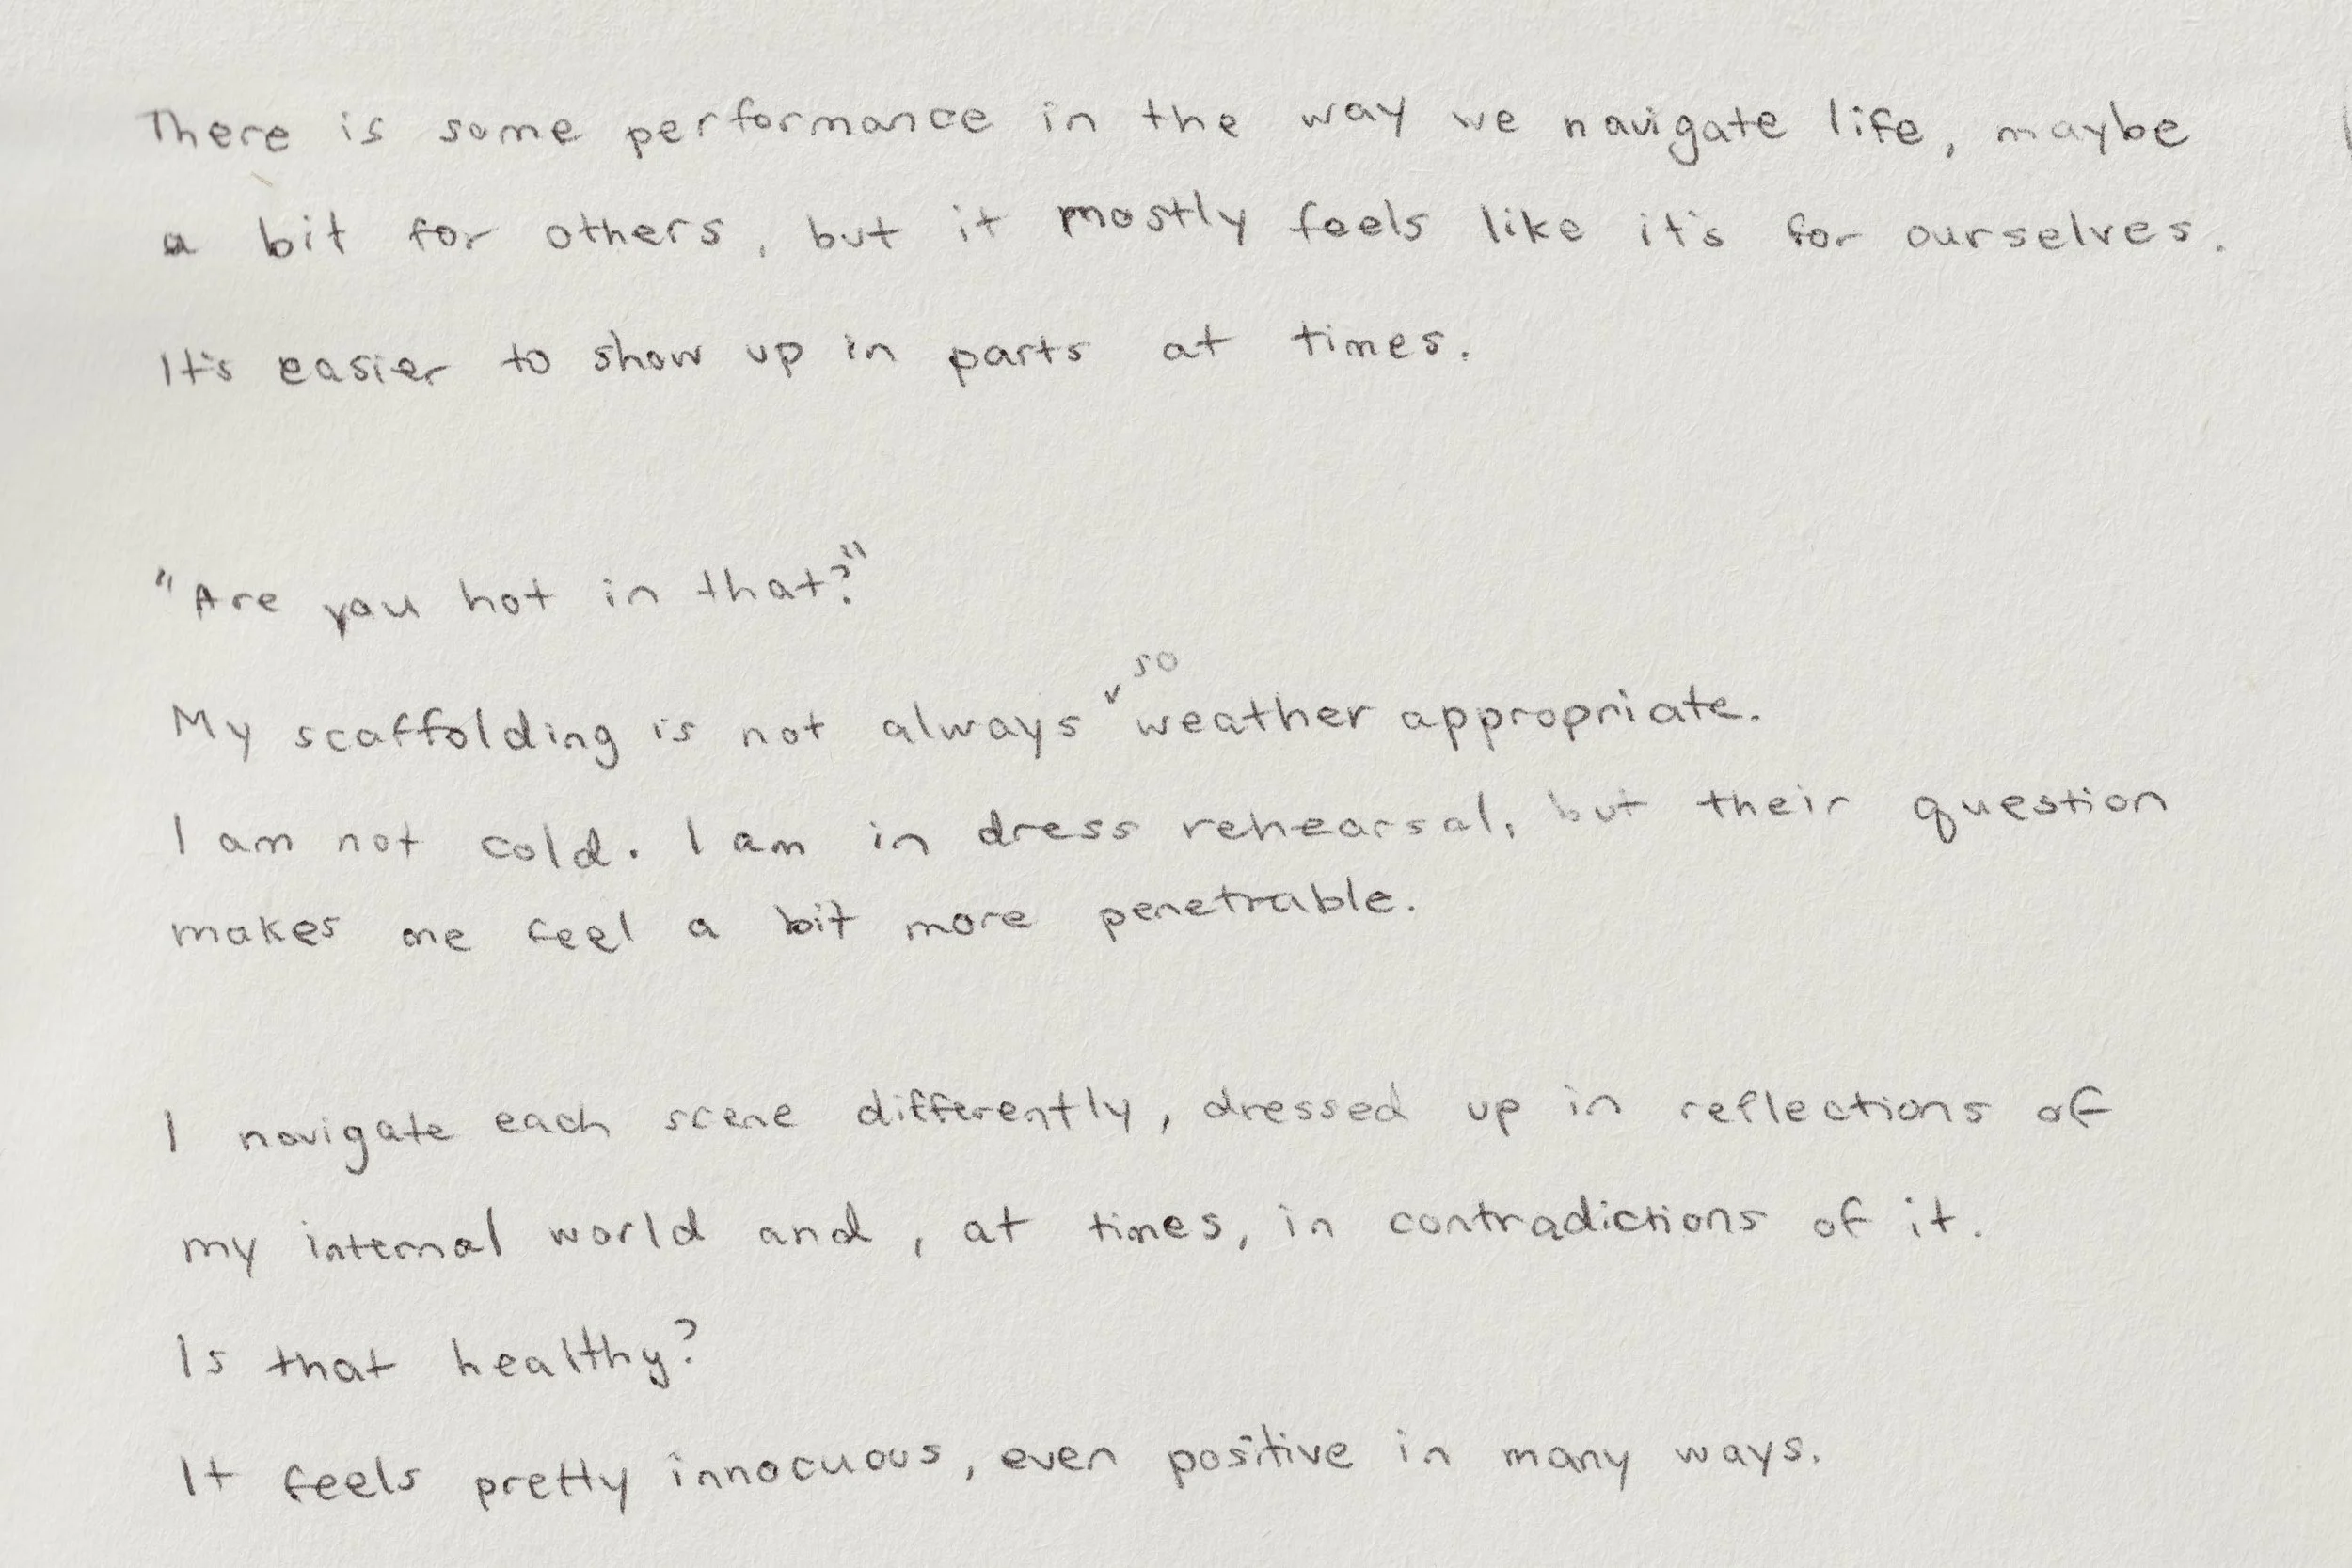 There is some performance in the way we navigate life, maybe
a bit for others, but it mostly feels like it's for ourselves.
It's easier to show up in parts at times.
"Are you hot in that?"
so
My scaffolding is not always weather appropriate.
I am not cold. I am in dress rehearsal, but their question
makes me feel a bit more penetrable.
I navigate each scene differently, dressed up in reflections of
my internal world and, at times, in contradictions of it.
Is that healthy?
It feels pretty innocuous, even positive in many ways.